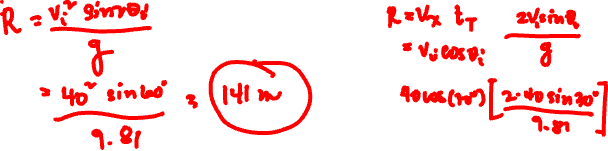 R = vᵢ² sin2θᵢ / g
= 40² sin60° / 9.81 = 141 m
R = Vx t_T  2vᵢsinθᵢ / g
= vᵢ cosθᵢ
40cos(30°) [2·40 sin30° / 9.81]